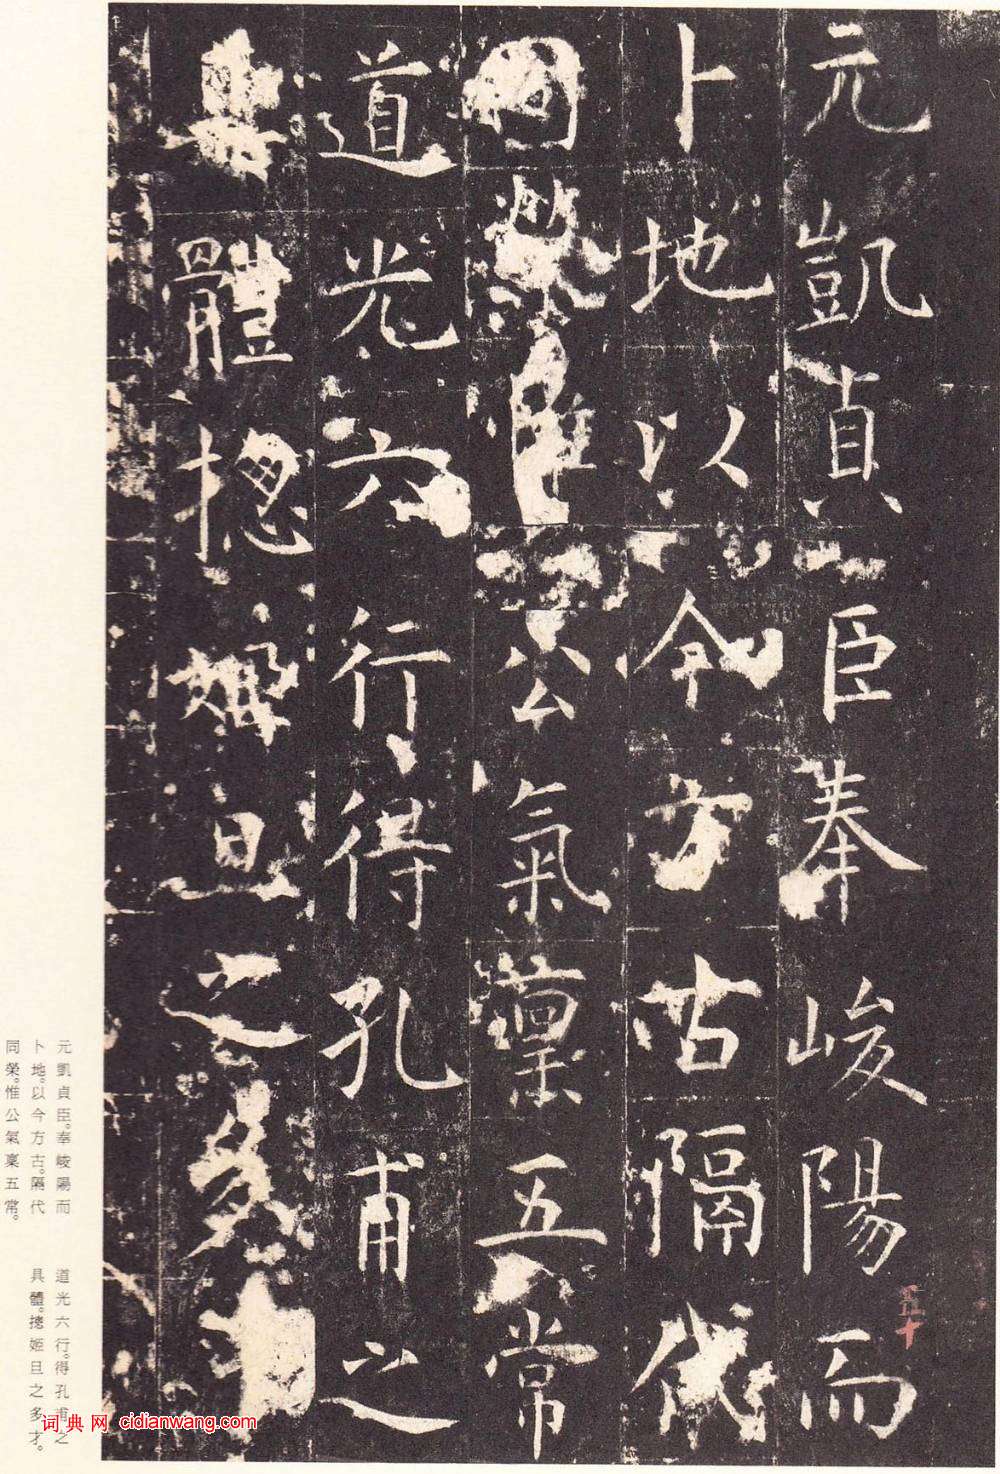 元凱貞臣奉峻陽而
卜地以今方古隔代
同榮惟公氣稟五常
道光六行得孔甫之
具體揔姬旦之多才
五十
元凱貞臣。奉峻陽而
卜地。以今方古。隔代
同榮。惟公氣稟五常。
道光六行。得孔甫之
具體。揔姬旦之多才。
词典网 cidianwang.com